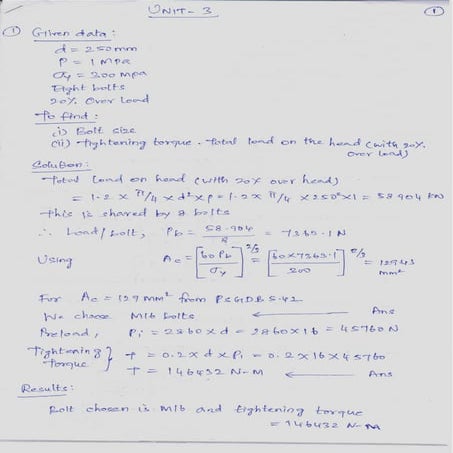 UNIT-3
1
① Given data:
d = 250mm
P = 1 MPa
σy = 200 MPa
Eight bolts
20% Over Load
To find:
(i) Bolt size
(ii) Tightening torque. Total load on the head (with 20% over load)
Solution:
Total Load on head (with 20% over head)
= 1.2 × π/4 × d² × P = 1.2 × π/4 × 250² × 1 = 58.904 KN
This is shared by 8 bolts
∴ Load/bolt, Pb = 58.904/8 = 7363.1N
Using Ac = [60 Pb/σy]^2/3 = [60×7363.1/200]^2/3 = 129.43 mm²
For Ac = 129 mm² from PSGDB 5.42
We choose M16 bolts ← Ans
Preload, Pi = 2860×d = 2860×16 = 45760N
Tightening Torque } T = 0.2×d×Pi = 0.2×16×45760
T = 146432 N-M ← Ans
Results:
Bolt chosen is M16 and tightening torque
= 146432 N-M